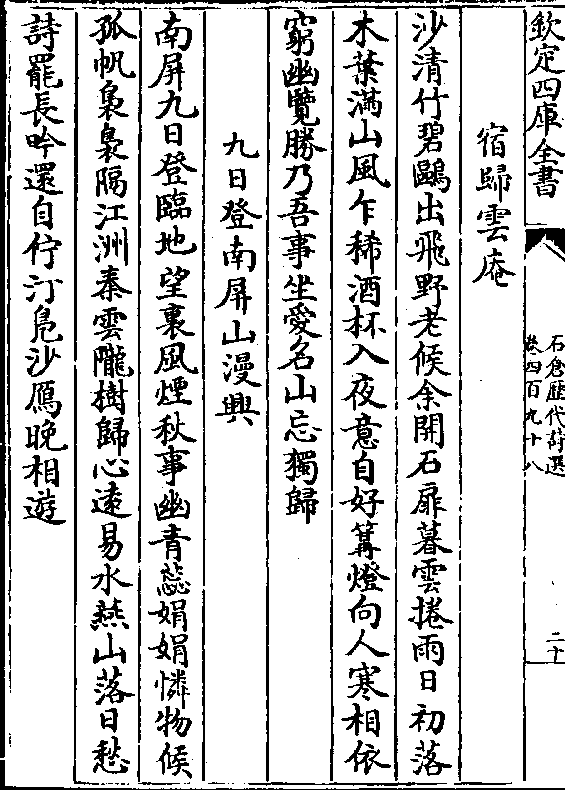 欽定四庫全書
石倉歴代詩選
卷四百九十八
二十
宿歸雲庵
沙清竹碧鷗出飛野老候余開石扉暮雲捲雨日初落
木葉滿山風乍稀酒杯入夜意自好篝燈向人寒相依
窮幽覽勝乃吾事坐愛名山忘獨歸
九日登南屏山漫興
南屏九日登臨地望裏風煙秋事幽青蕊娟娟憐物候
孤帆裊裊隔江洲秦雲隴樹歸心遠易水燕山落日愁
詩罷長吟還自佇汀鳬沙鴈晚相遊